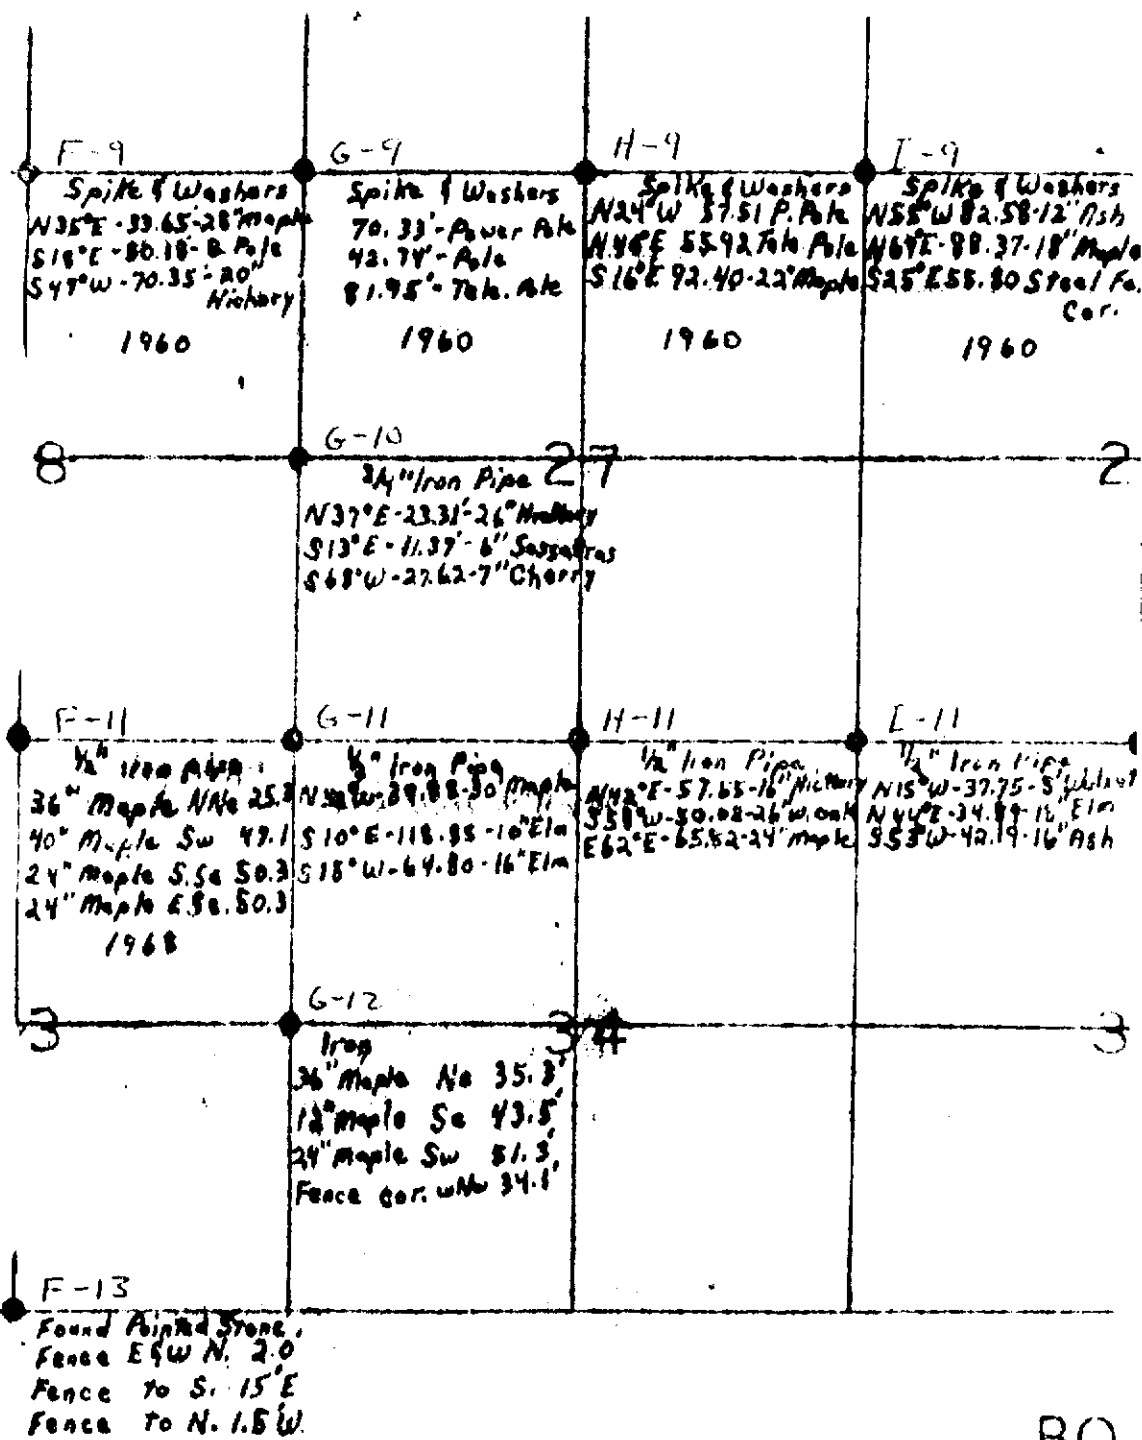 F-9
Spike & Washers
N35°E-33.65-28"Maple
S18°E-80.18-B. Pole
S47°W-70.35'-20"
Hickory
1960
G-9
Spike & Washers
70.33'-Power Pole
42.74'-Pole
81.95'-Tele. Pole
1960
H-9
Spike & Washers
N24°W 57.51 P. Pole
N48°E 55.92 Tele. Pole
S16°E 92.40-22"Maple
1960
I-9
Spike & Washers
N55°W 82.58-12"Ash
N64°E-88.37-18"Maple
S25°E 55.80 Steel Fe.
Cor.
1960
8
G-10
27
2
3/4" Iron Pipe
N37°E-23.31'-26"
S13°E-11.37'-6" Sassafras
S68°W-27.62-7" Cherry
F-11
1/2" Iron
36" Maple NNe 25.3
40" Maple Sw 47.1
24" Maple S.Se 50.3
24" Maple E.Se. 50.3
1968
G-11
1/2" Iron Pipe
Maple
S10°E-118.95-10"Elm
S18°W-64.80-16"Elm
H-11
1/2" Iron Pipe
N42°E-57.65-16"Hickory
S58°W-50.08-26"W.oak
E62°E-65.82-24"Maple
I-11
1/2" Iron Pipe
N15°W-37.75-5"Walnut
N44°E-34.89-15"Elm
S53°W-42.19-16"Ash
3
G-12
34
3
Iron
36"Maple Ne 35.3'
12"Maple Se 43.5'
24"Maple Sw 51.3'
Fence cor. wNw 34.1'
F-13
Found Pointed Stone.
Fence E&W N. 2.0
Fence to S. 15'E
Fence to N. 1.5'W.
BO